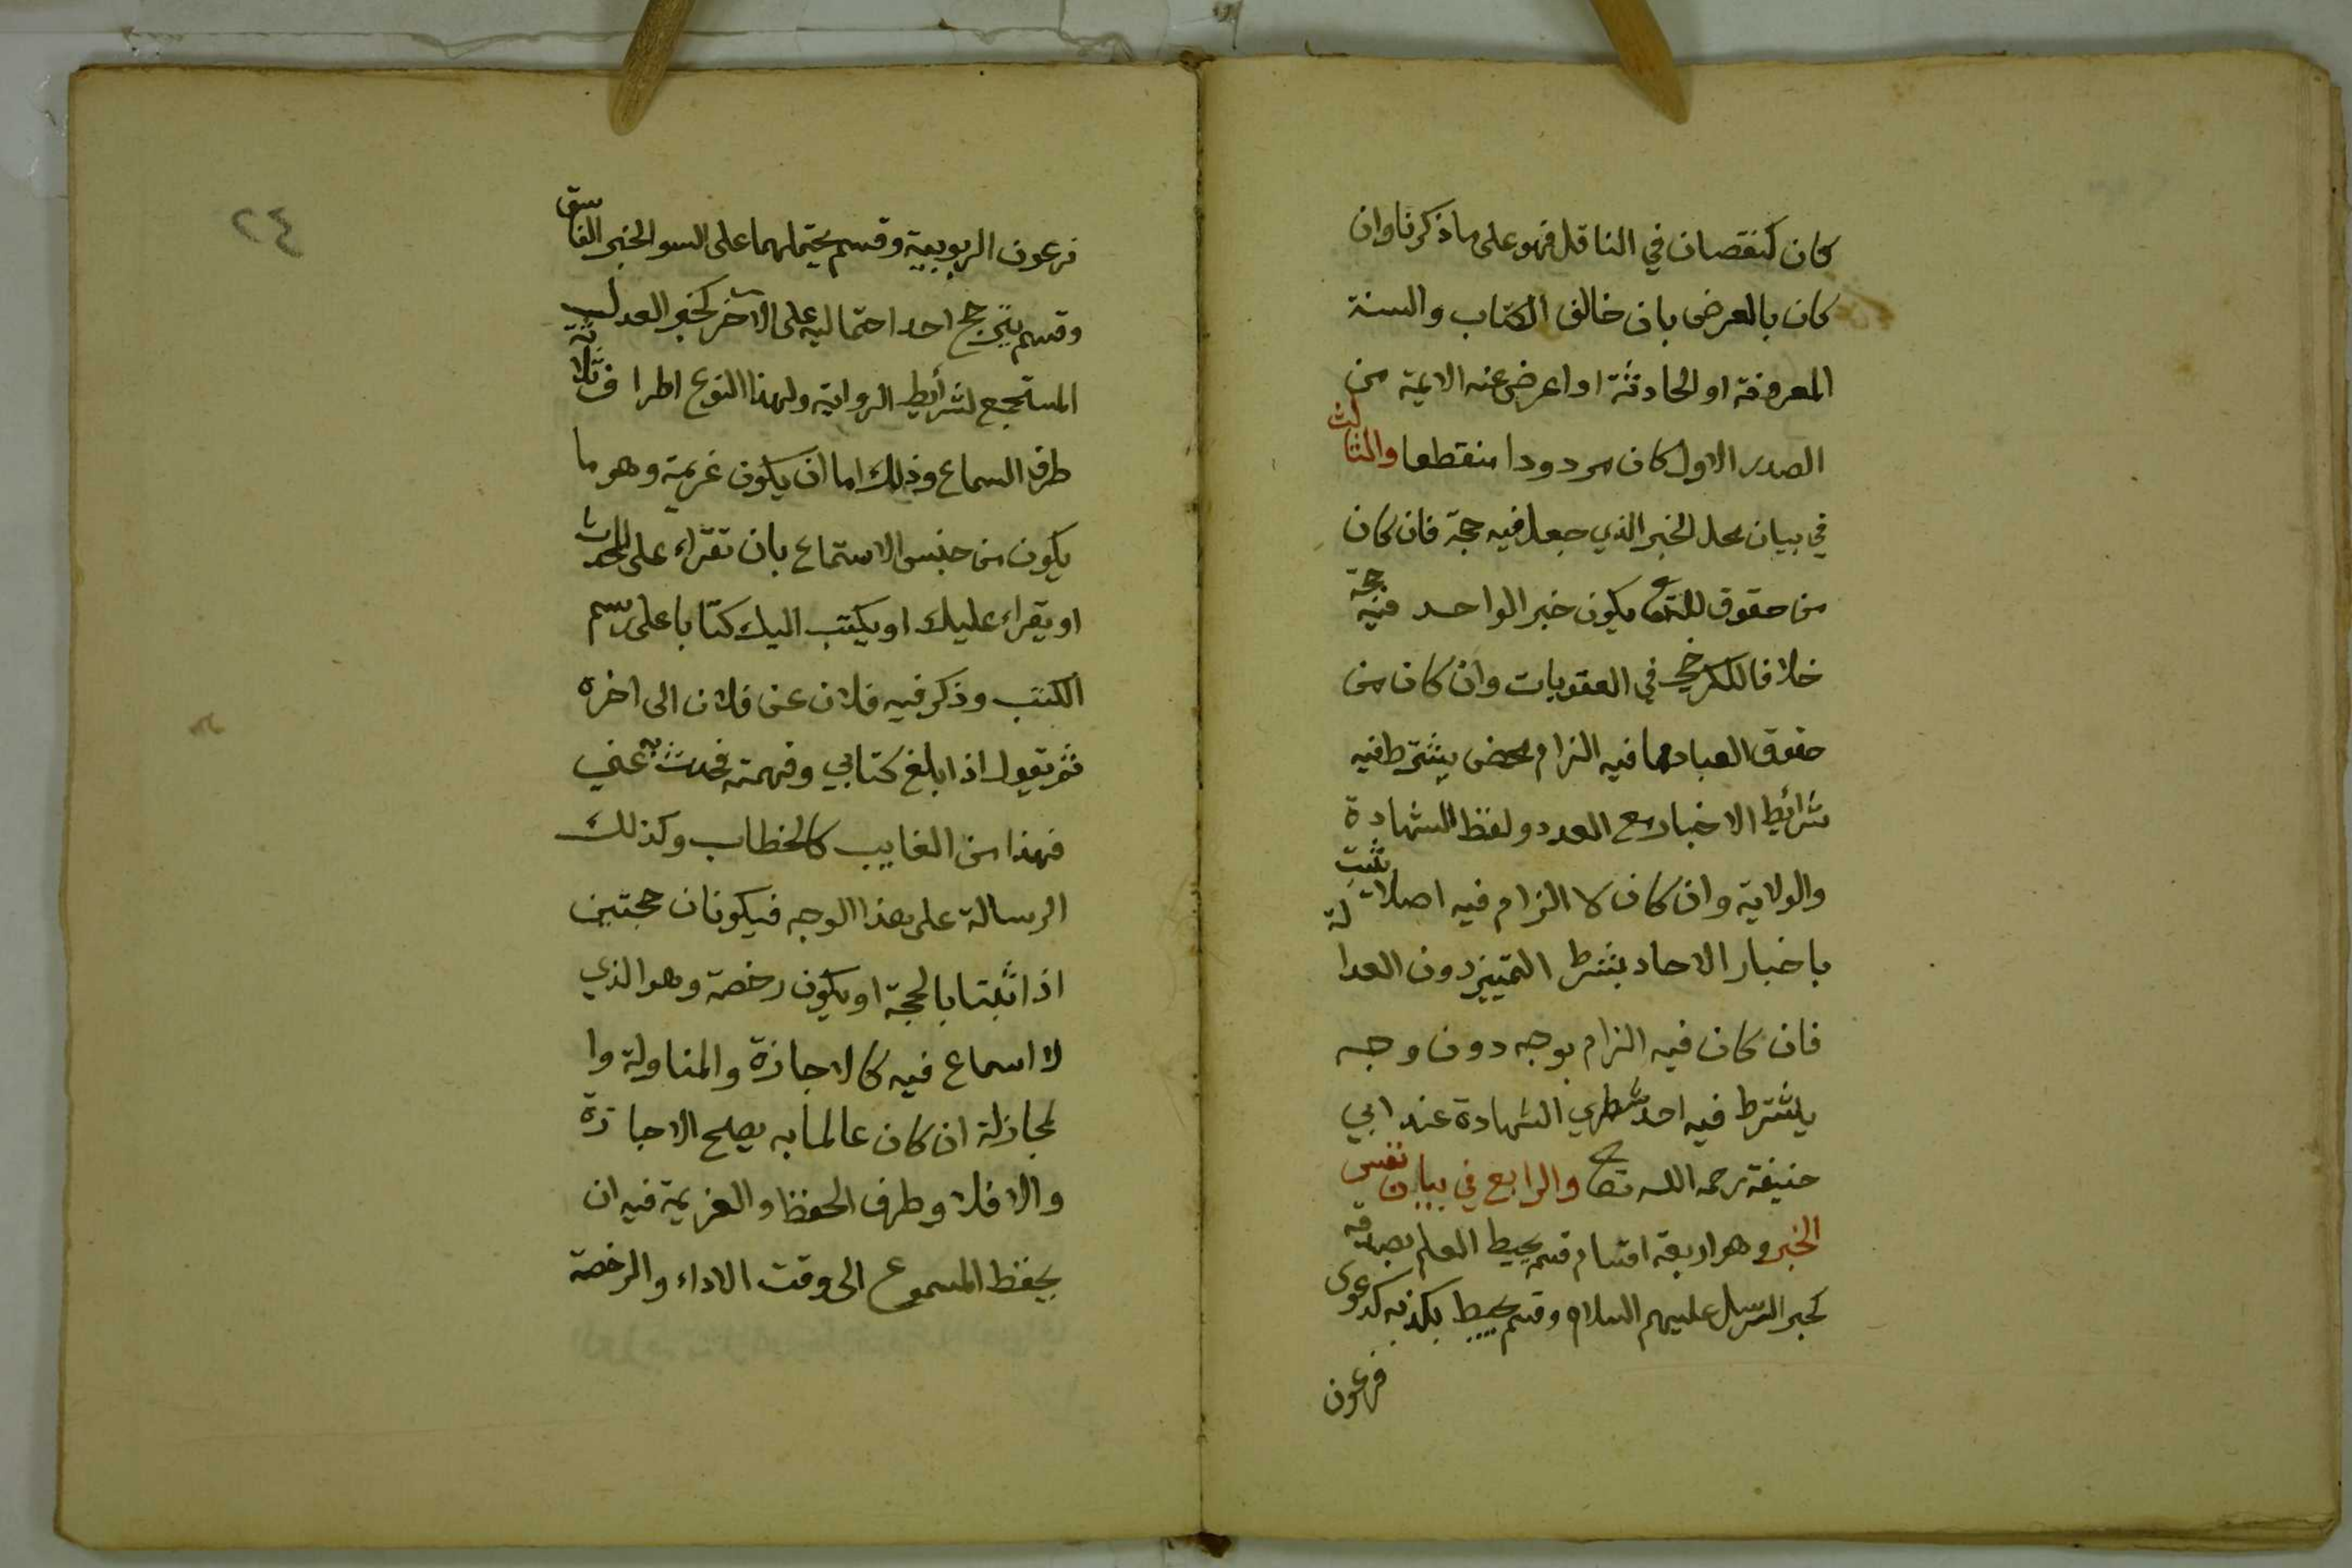 كان لنقصان في الناقل فهو على ما ذكرنا وان
كان بالعرض بان خالف الكتاب والسنة
المعروفة او الحادثة او اعرض عنه الايمة من
الصدر الاول كان مردودا منقطعا والثالث
في بيان محل الخبر الذي جعل فيه حجة فان كان
من حقوق الله تعا يكون خبر الواحد فيه حجة
خلافا للكرخي في العقوبات وان كان من
حقوق العباد مما فيه الزام محض يشترط فيه
شرائط الاخبار مع العدد ولفظ الشهادة
والولاية وان كان لا الزام فيه اصلا يثبت
باخبار الاحاد بشرط التمييز دون العدالة
فان كان فيه الزام بوجه دون وجه
يشترط فيه احد شطري الشهادة عند ابي
حنيفة رحمه الله تعا والرابع في بيان نفس
الخبر وهو اربعة اقسام قسم يحيط العلم بصدقه
كخبر الرسل عليهم السلام وقسم يحيط بكذبه كدعوى
فرعون
٢٤
فرعون الربوبية وقسم يحتملهما على السوا لخبر الفاسق
وقسم يترجح احد احتماليه على الآخر كخبر العدل
المستجمع لشرائط الرواية ولهذا النوع اطراف ثلاثة
طرف السماع وذلك اما ان يكون عزيمة وهو ما
يكون من جنس الاستماع بان تقراء على المحدث
او يقراء عليك او يكتب اليك كتابا على رسم
الكتب وذكر فيه فلان عن فلان الى اخره
ثم يقول اذا بلغ كتابي وفهمته فحدث به عني
فهذا من الغايب كالخطاب وكذلك
الرسالة على هذا الوجه فيكونان حجتين
اذا ثبتا بالحجة او يكون رخصة وهو الذي
لا اسماع فيه كالاجازة والمناولة وا
لمجاز له ان كان عالما به يصح الاجازة
والا فلا وطرف الحفظ والعزيمة فيه ان
يحفظ المسموع الى وقت الاداء والرخصة